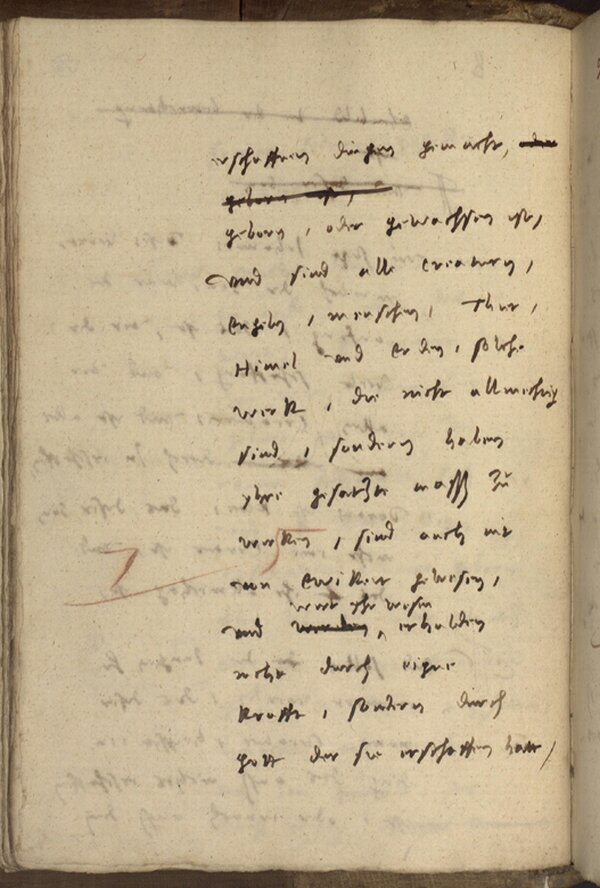 erschaffen dingen gemacht, oder
geborn ist,
geborn, oder gewachsen ist,
Und sind alle Creaturn,
Engeln, menschen, Thier,
Himel und erden, solche
werk, die nicht allmechtig
sind, sondern haben
yhre gesatzte mass zu
wirken, sind auch nit
von ewikeit gewesen,
wirt yhr wesen
und werden, erhalden
nicht durch eigne
Krafft, sondern durch
gott der sie erschaffen hatt,